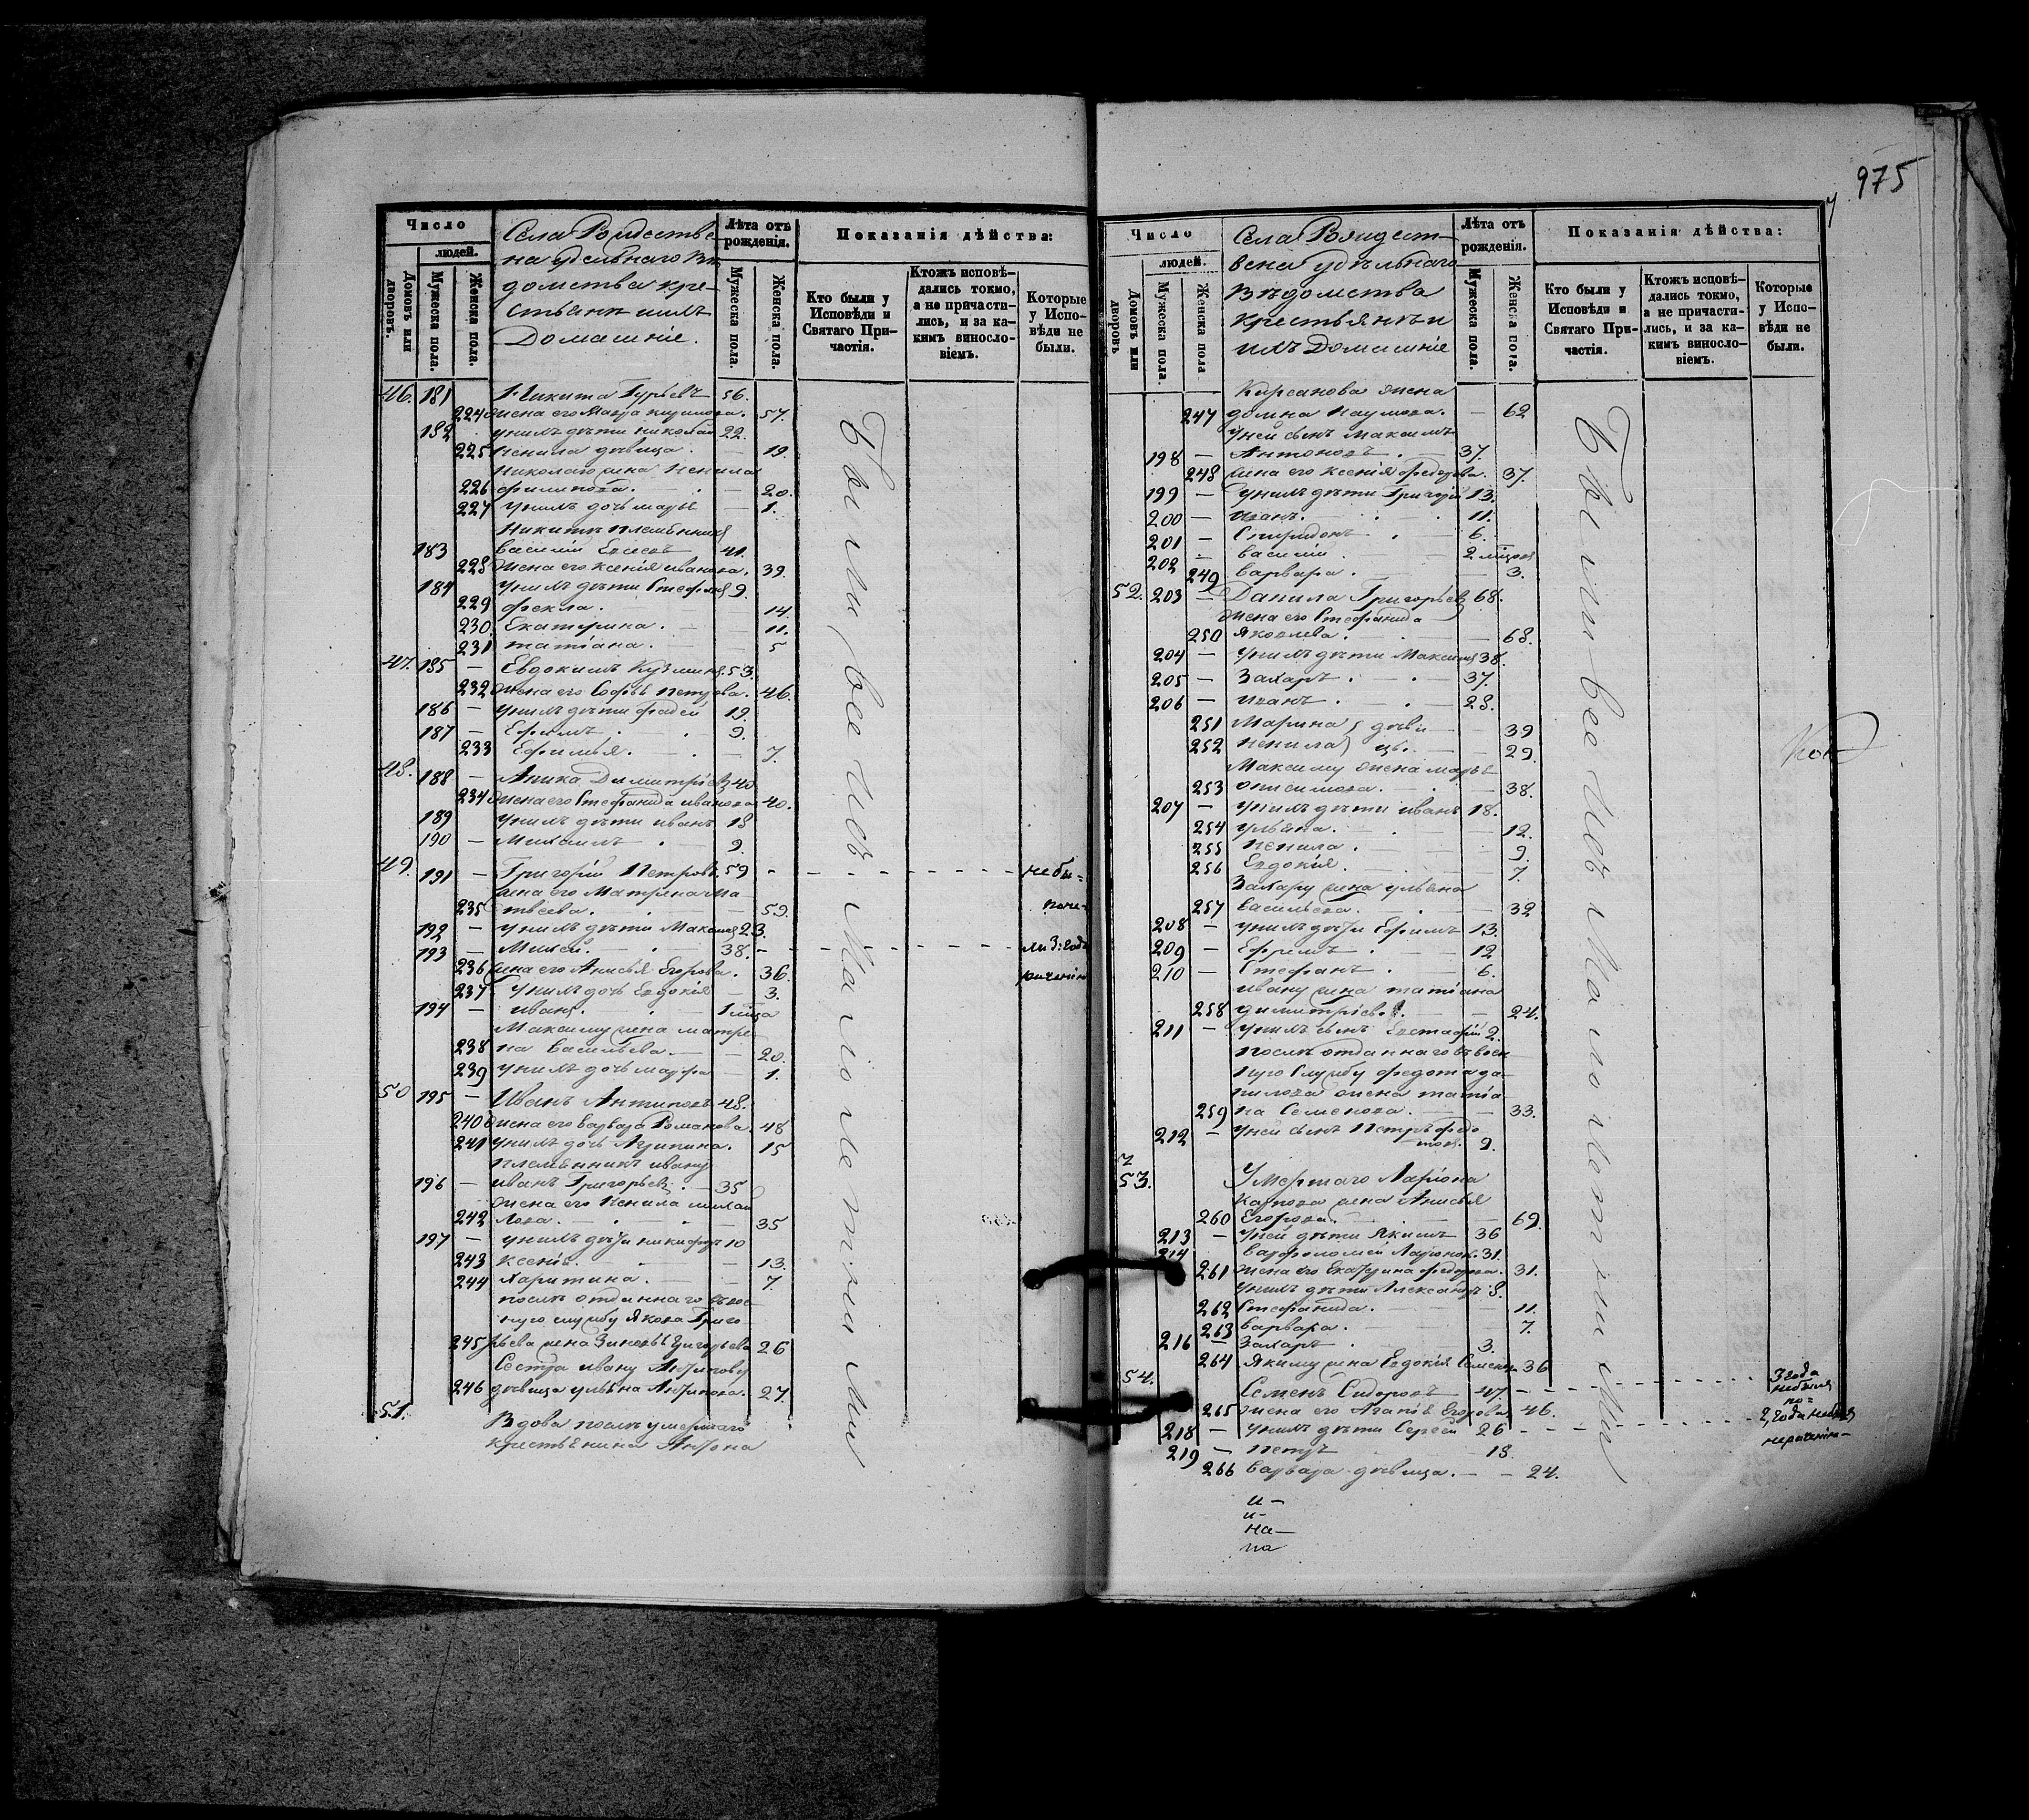 Число
людей.
Домовъ или дворовъ.
Мужеска пола.
Женска пола.
Села Рождестве
на удельнаго Вѣ
домства кре-
стьянъ ихъ
Домашніе.
Лѣта отъ рожденія.
Мужеска пола.
Женска пола.
Показанія дѣйства:
Кто были у Исповѣди и Святаго Причастія.
Ктожъ исповѣ-
дались токмо,
а не причасти-
лись, и за ка-
кимъ винословіемъ.
Которые у Испо-
вѣди не были.
46. 181 Никита Гурьевъ 56.
224 жена его Мавра 57.
182 у нихъ дѣти николай 22.
225 Ненила дѣвица. 19.
Николаю жена Ненила
226 филипова. 20.
227 у нихъ дочь марья 1.
Никитѣ племенникъ
183 василій 41.
228 жена его ксенія иванова. 39.
184 у нихъ дѣти Стефанъ 9.
229 фекла. 14.
230 Екатерина. 11.
231 татіана. 5
47. 185 Евдокимъ Кузминъ. 53.
232 жена его Софья петрова. 46.
186 у нихъ дѣти фадей 19.
187 Ефимъ 9.
233 Ефимья. 7.
48. 188 Аника Димитріевъ 40
234 жена его Стефанида иванова 40.
189 у нихъ дѣти иванъ 18
190 Михаилъ 9.
49. 191 Григорій Петровъ. 59 небы-
жена его Матрена Ма
235 твеева. 59.
192 у нихъ дѣти Максимъ 23.
193 Михей. 38. ли 3: года
236 жена его Анисья Егорова. 36.
237 у нихъ дочь Евдокія 3.
194 иванъ. 1 мца
Максиму жена матре
238 на Васильева. 20.
239 у нихъ дочь марфа 1.
50 195 Иванъ Антиповъ 48.
240 жена его варвара Романова. 48
241 у нихъ дочь Агрипина. 15
племенникъ ивану
196 иванъ Григорьевъ. 35
жена его Ненила михаи
242 лова. 35
197 у нихъ дѣти никифоръ 10
243 ксенія. 13.
244 харитина. 7.
послѣ отданнаго въ вое
ную службу Якова Григо
245 рьева жена Зиновья Григорьева 26
Сестра ивану Антипову
246 дѣвица ульяна Антипова. 27.
51. Вдова послѣ умершаго
крестьянина Антона
Были все Изъ Малолетни ми
975
Число
людей.
Домовъ или дворовъ
Мужеска пола.
Женска пола
Села Рождест-
вена удѣльнаго
Вѣдомства
крестьянъ и
ихъ Домашніе
Лѣта отъ рожденія.
Мужеска пола.
Женска пола.
Показанія дѣйства:
Кто были у
Исповѣди и
Святаго При-
частія.
Ктожъ исповѣ-
дались токмо,
а не причасти-
лись, и за ка-
кимъ винословіемъ.
Которые
у Испо-
вѣди не
были.
Кирсанова жена
247 домна Наумова. 62
у ней сынъ Максимъ
198 Антоновъ. 37.
248 жена его ксенія федорова. 37.
199 у нихъ дѣти Григорій 13.
200 иванъ. 11.
201 Спиридонъ 6.
202 василій 2 мѣцовъ
249 варвара. 3.
52. 203 Данила Григорьевъ 68.
жена его Стефанида
250 Яковлева. 68.
204 у нихъ дѣти Максимъ 38.
205 Захаръ. 37.
206 иванъ. 28.
251 Марина дѣви 39
252 ненила цы. 29.
Максиму жена марья
253 онисимова. 38.
207 у нихъ дѣти иванъ 18.
254 ульяна. 12.
255 ненила. 9.
256 Евдокія. 7.
Захару жена ульяна
257 васильева. 32
208 у нихъ дѣти Ефимъ 13.
209 Ефремъ 12
210 Стефанъ 6.
ивану жена татіана
258 димитріева. 24.
211 у нихъ сынъ Евстафій 2.
послѣ отданнаго въ воен
ную Службу федота да
нилова жена татіа
259 на Семенова. 33.
212 у ней сынъ Петръ федо
товъ. 9.
53. Умершаго Ларіона
Карпова жена Анисья
260 Егорова. 69.
213 у ней дѣти Якимъ 36
214 варфоломей Ларіонов. 31.
261 жена его Екатерина федорова. 31.
у нихъ дѣти Александръ 8.
262 Стефанида. 11.
263 варвара. 7.
216 Захаръ 3.
264 Якиму жена Евдокія Семенов 36
54. Семенъ Сидоровъ 47. 3 года
265 жена его Агапія Егорова 46.
218 у нихъ дѣти Сергей 26
219 петръ 18.
266 варвара дѣвица. 24.
и-
и-
на-
на
Были все Изъ Малолетни ми